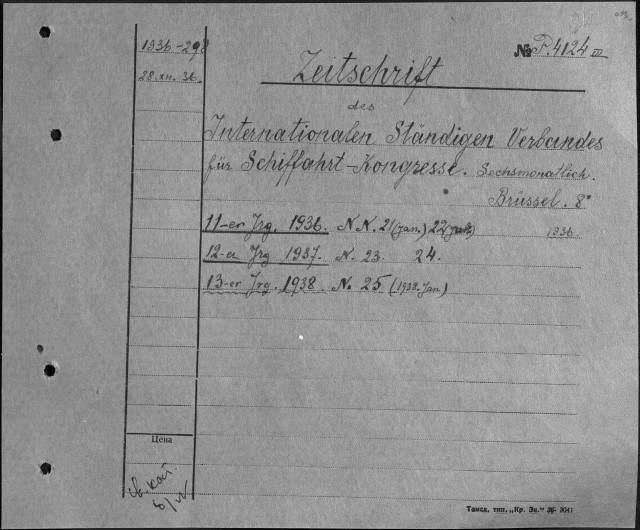 1936-298
№ P.4124 III
28.XII.36.
Zeitschrift
des
Internationalen Ständigen Verbandes
für Schiffahrt-Kongresse. Sechsmonatlich.
Brüssel. 8°
11-er Jrg. 1936. N.N. 21 (Jan.) 22 (Juli) 1936
12-er Jrg 1937. N. 23. 24.
13-er Jrg. 1938. N. 25 (1938. Jan.)
Цена
Томск, тип. „Кр. Зн."